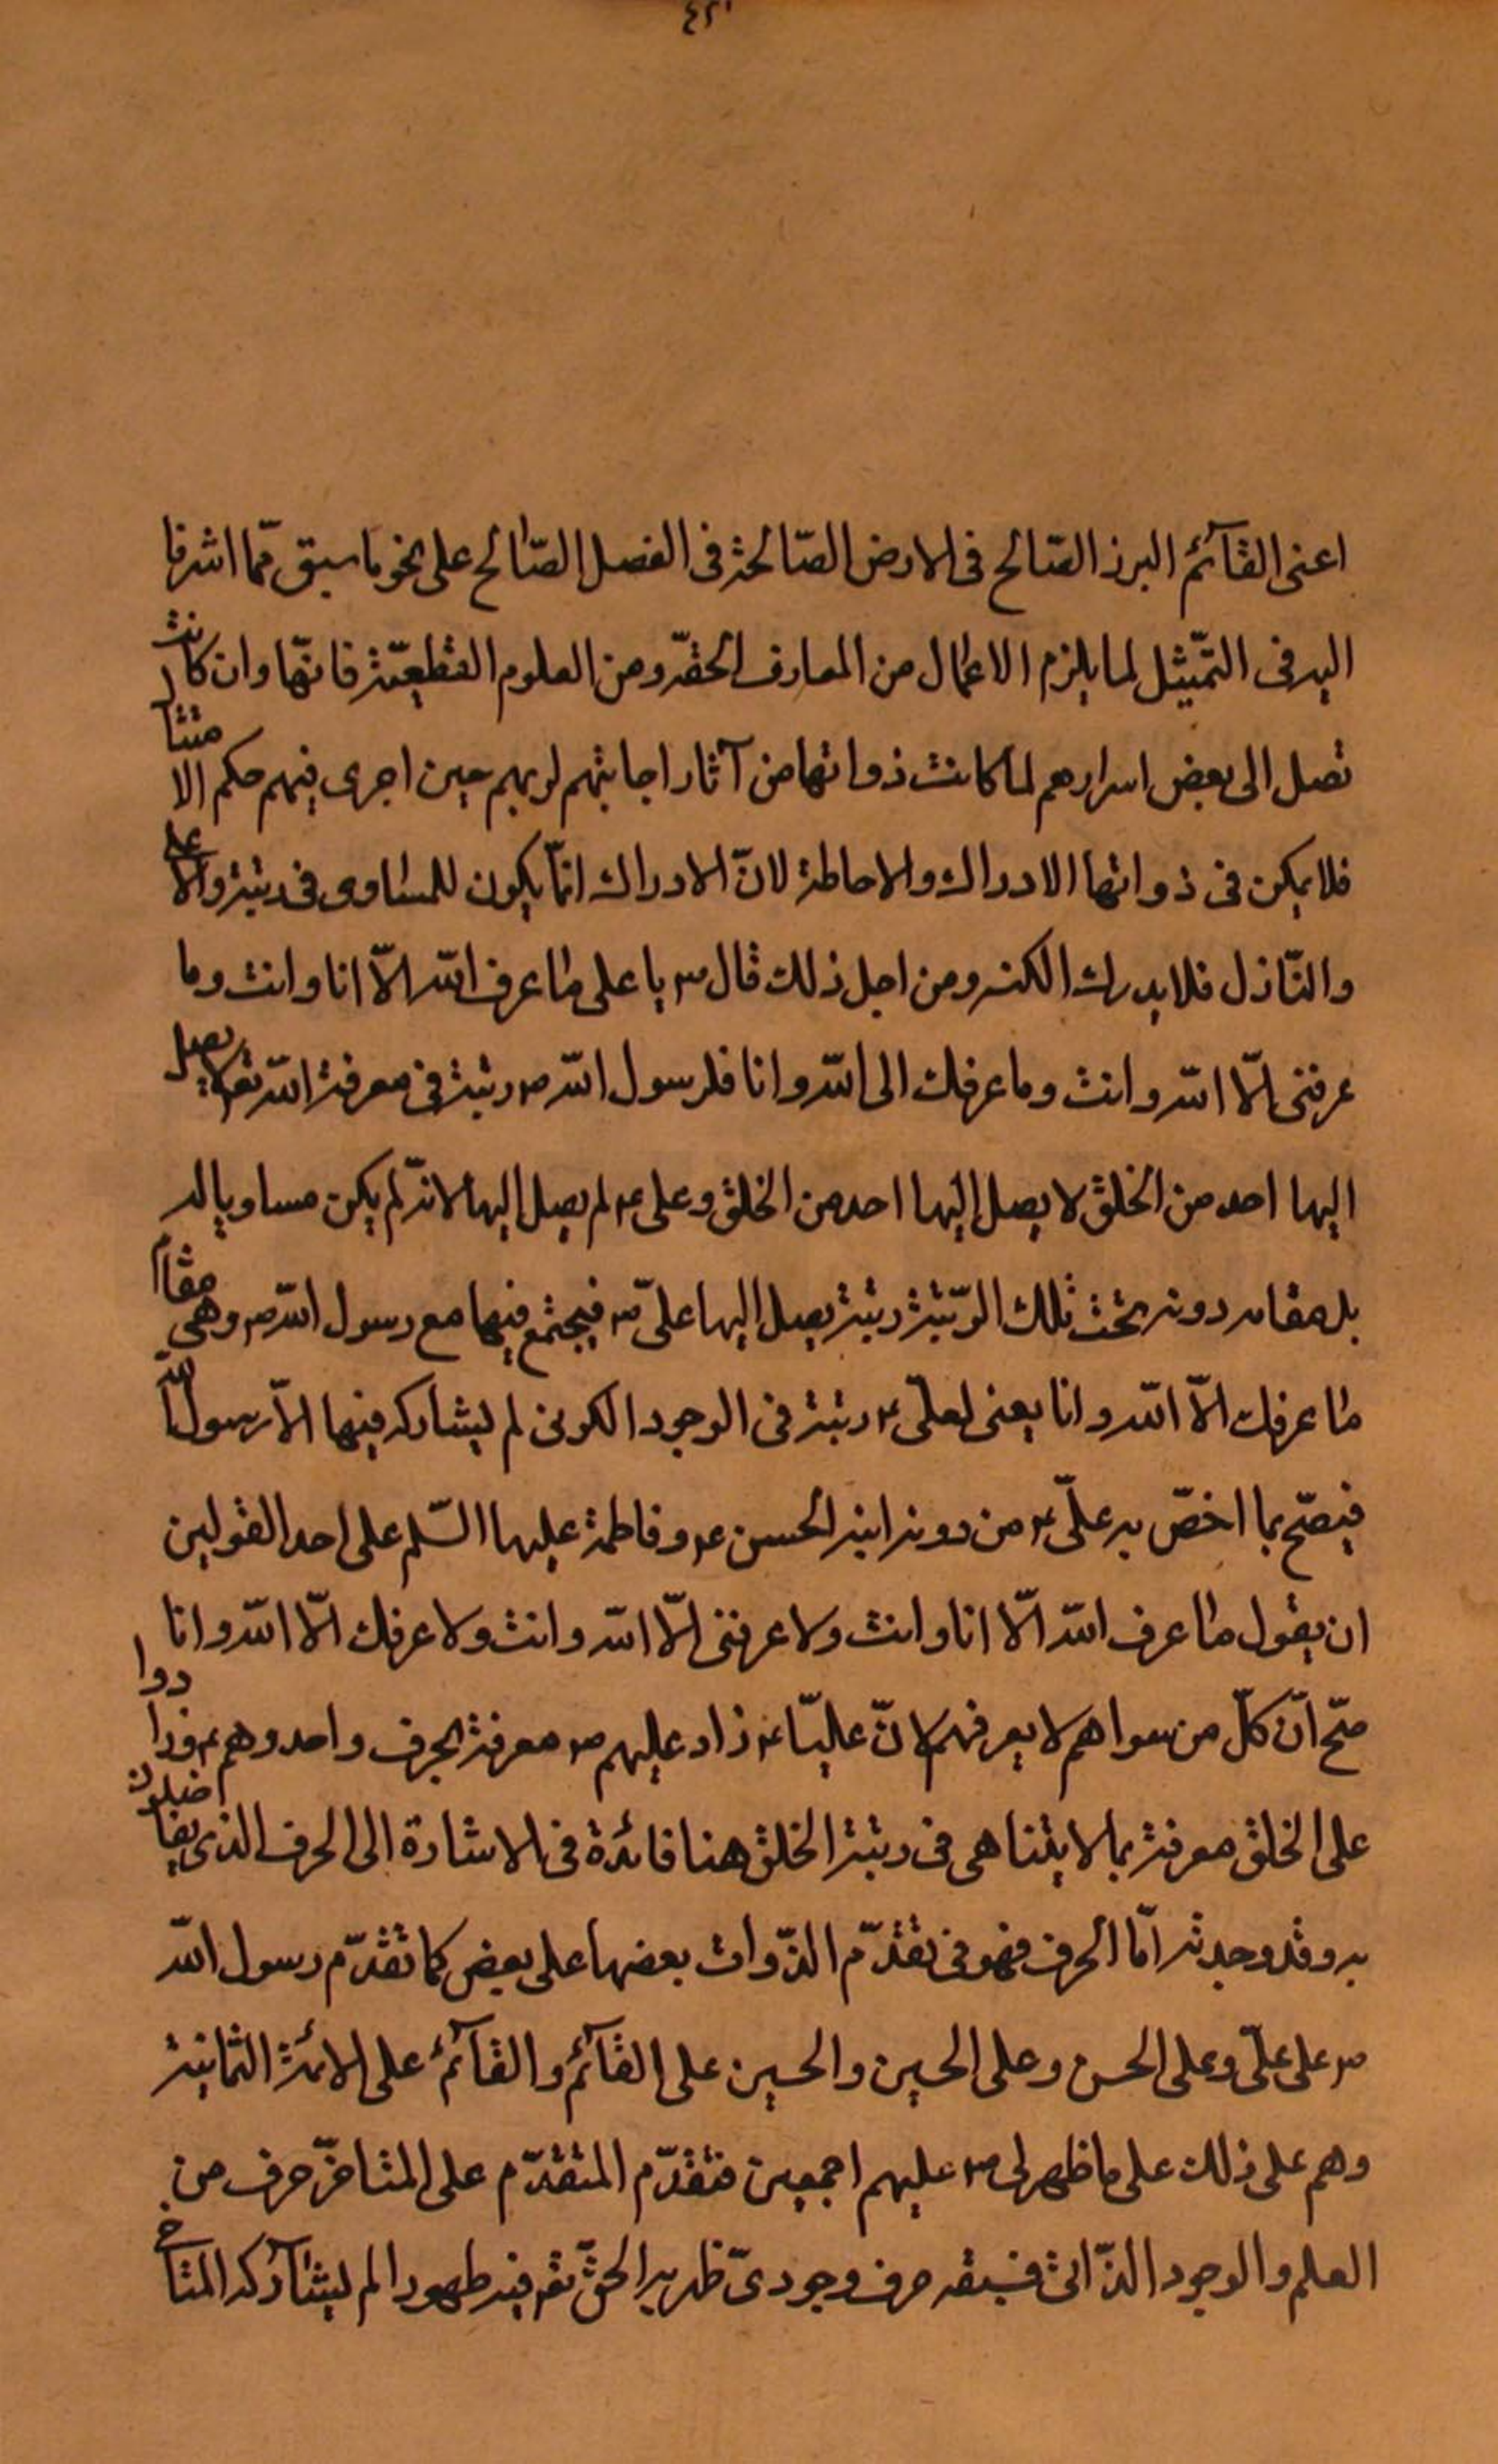 ٤٢١
اعنى القآئم البرز الصّالح فى الارض الصّالحة فى الفصل الصّالح على نحو ما سبق ممّا اشرفا
اليه فى التمّثيل لما يلزم الاعمال من المعارف الحقّه ومن العلوم القطعيّة فانّها وان كانت
تصل الى بعض اسرارهم لما كانت ذواتها من آثار اجابتهم لربهم حين اجرى فيهم حكم الامتثا
فلا يمكن فى ذواتها الادراك والاحاطة لانّ الادراك انّما يكون للمساوى فى رتبة والاعلى
والنّازل فلا يدرك الكنه ومن اجل ذلك قال ص يا على ما عرف الله الّا انا وانت وما
عرفنى الّا الله وانت وما عرفك الى الله وانا فلرسول الله ص رتبة فى معرفة الله تع لا يصل
اليها احد من الخلق لا يصل اليها احد من الخلق وعلى ع لم يصل اليها لانّه لم يكن مساويا له
بل مقامه دونه تحت تلك الرّتبة رتبة يصل اليها علىّ ع فيجتمع فيها مع رسول الله ص وهى مقام
ما عرفك الّا الله وانا يعنى لعلىّ ع رتبة فى الوجود الكونى لم يشاركه فيها الّا رسول الله
فيصّح بما اخصّ به علىّ ع من دونه ابنه الحسن ع وفاطمة عليها السّلم على احد القولين
ان يقول ما عرف الله الّا انا وانت ولا عرفنى الّا الله وانت ولا عرفك الّا الله وانا
صّح انّ كلّ من سواهم لا يعرفهم لانّ عليّا ع زاد عليهم ص معرفة بحرف واحد وهم ع زادوا
على الخلق معرفة بما لا يتناهى فى رتبة الخلق هنا فائدة فى الاشارة الى الحرف الذى يتفاضلون
به وقد وجدته امّا الحرف فهو فى تقدّم الذّوات بعضها على بعض كما تقدّم رسول الله
ص على علىّ وعلى الحسن وعلى الحسين والحسين على القآئم والقآئم على الائمّة الثمانية
وهم على ذلك على ما ظهر لى ص عليهم اجمعين فتقدّم المتقدّم على المتاخرّ حرف من
العلم والوجود الذّاتى فسبقه حرف وجودىّ ظهر به الحقّ تع فيه ظهورا لم يشارکه المتاخ